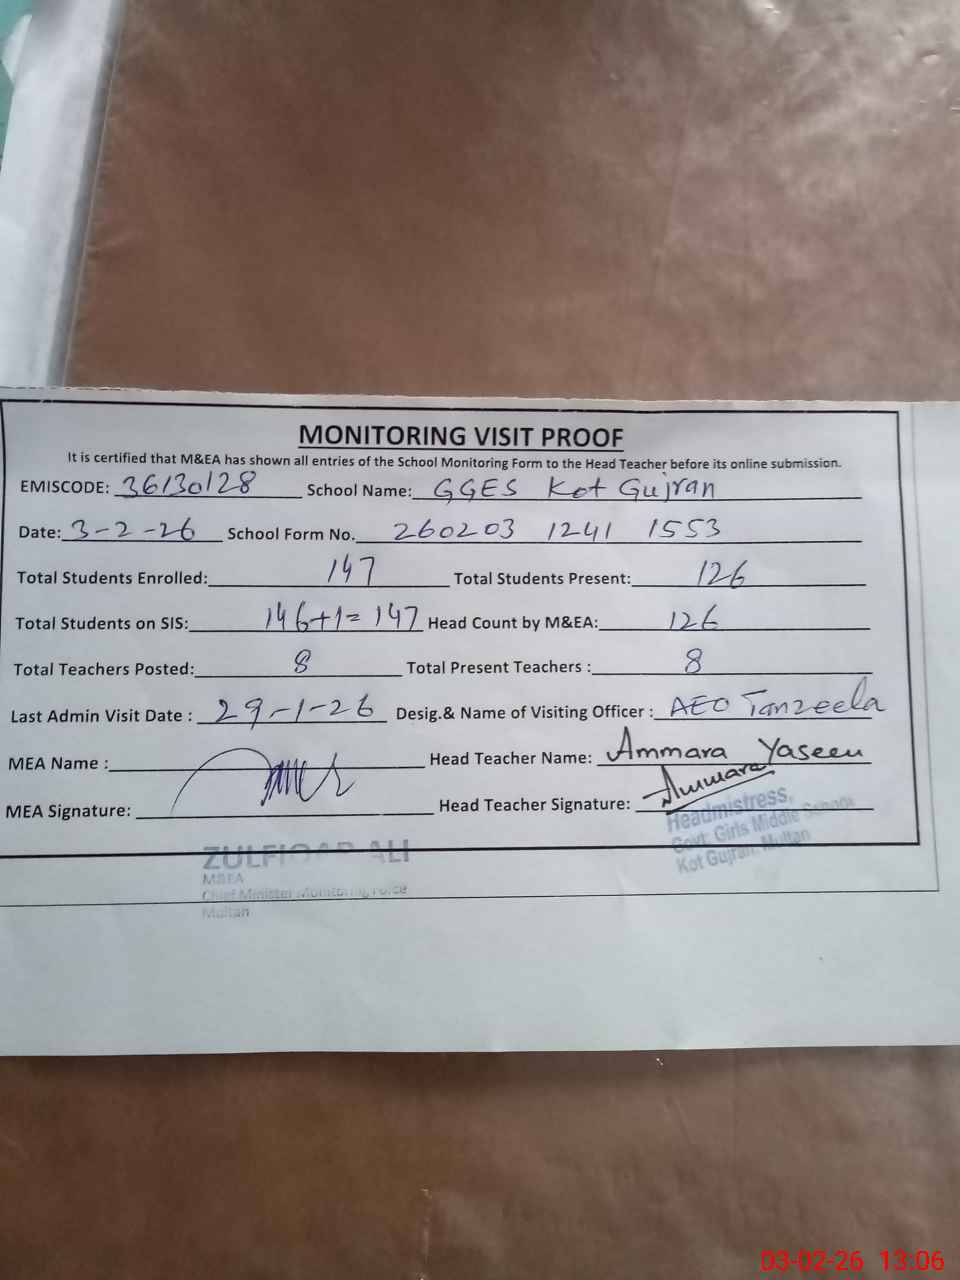 MONITORING VISIT PROOF
It is certified that M&EA has shown all entries of the School Monitoring Form to the Head Teacher before its online submission.
EMISCODE: 36130128 School Name: GGES Kot Gujran
Date: 3-2-26 School Form No. 260203 1241 1553
Total Students Enrolled: 147 Total Students Present: 126
Total Students on SIS: 146+1=147 Head Count by M&EA: 126
Total Teachers Posted: 8 Total Present Teachers : 8
Last Admin Visit Date : 29-1-26 Desig.& Name of Visiting Officer : AEO Tanzeela
MEA Name : Head Teacher Name: Ammara Yaseen
MEA Signature: Head Teacher Signature: Ammara
Headmistress,
Govt: Girls Middle School
Kot Gujran, Multan
ZULFIQAR ALI
M&EA
Chief Minister Monitoring Force
Multan
03-02-26 13:06